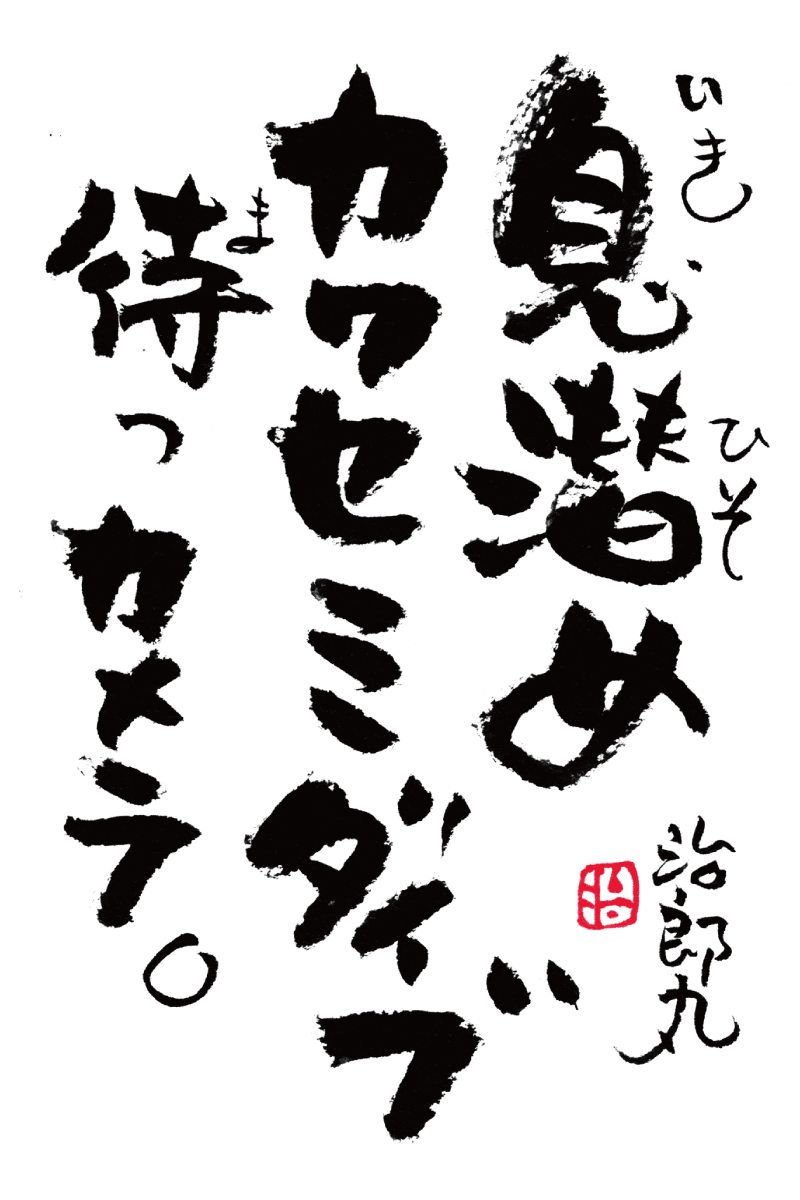 いき ひそ
息潜め
カワセミダイブ
ま
待つカメラ。
治郎丸
治